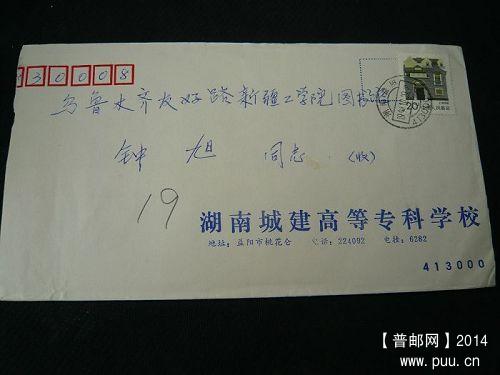 830008
乌鲁木齐友好路新疆工学院图书馆
20
钟旭 同志 (收)
19
湖南城建高等专科学校
地址：益阳市桃花仑 电话：224092 电挂：6282
413000
【普邮网】2014
www.puu.cn